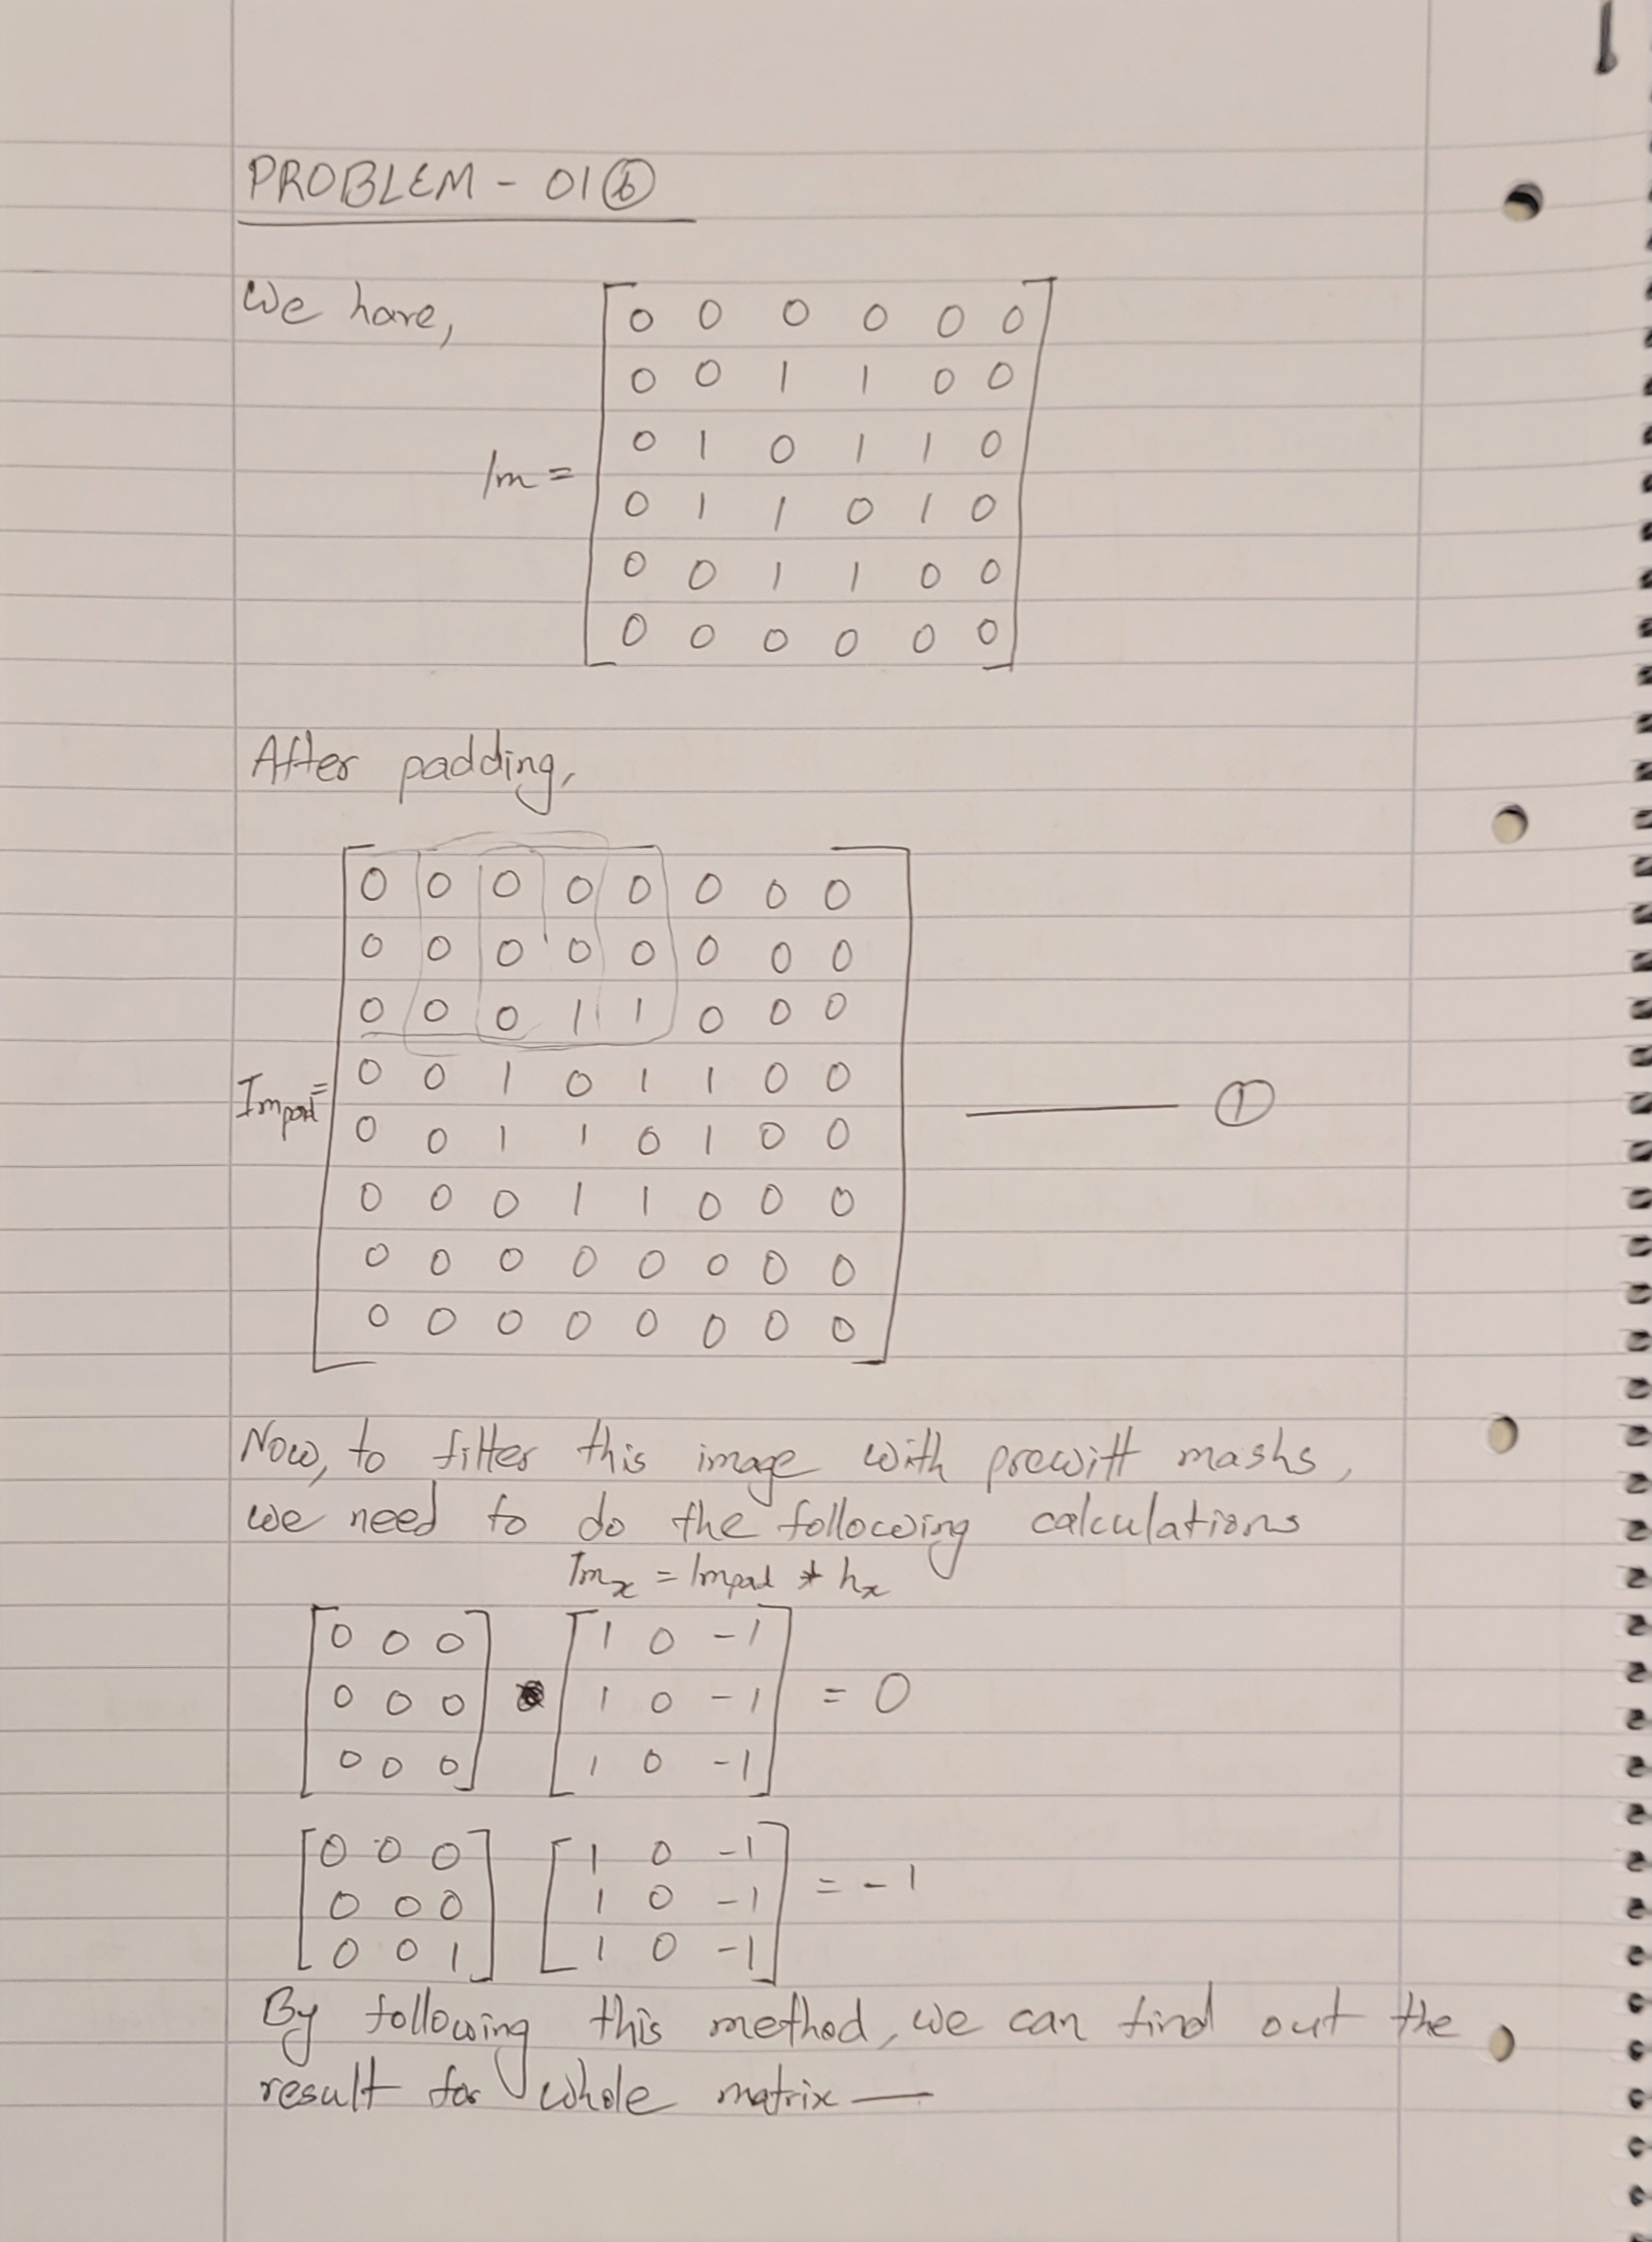 1
PROBLEM - 01 ⓑ
We have,
Im =
0 0 0 0 0 0
0 0 1 1 0 0
0 1 0 1 1 0
0 1 1 0 1 0
0 0 1 1 0 0
0 0 0 0 0 0
After padding,
Impad =
0 0 0 0 0 0 0 0
0 0 0 0 0 0 0 0
0 0 0 1 1 0 0 0
0 0 1 0 1 1 0 0
0 0 1 1 0 1 0 0
0 0 0 1 1 0 0 0
0 0 0 0 0 0 0 0
0 0 0 0 0 0 0 0
— ①
Now, to filter this image with prewitt mashs,
we need to do the following calculations
Imx = Impad * hx
[0 0 0] [1 0 -1]
[0 0 0] [1 0 -1] = 0
[0 0 0] [1 0 -1]
[0 0 0] [1 0 -1]
[0 0 0] [1 0 -1] = -1
[0 0 1] [1 0 -1]
By following this method, we can find out the
result for whole matrix —